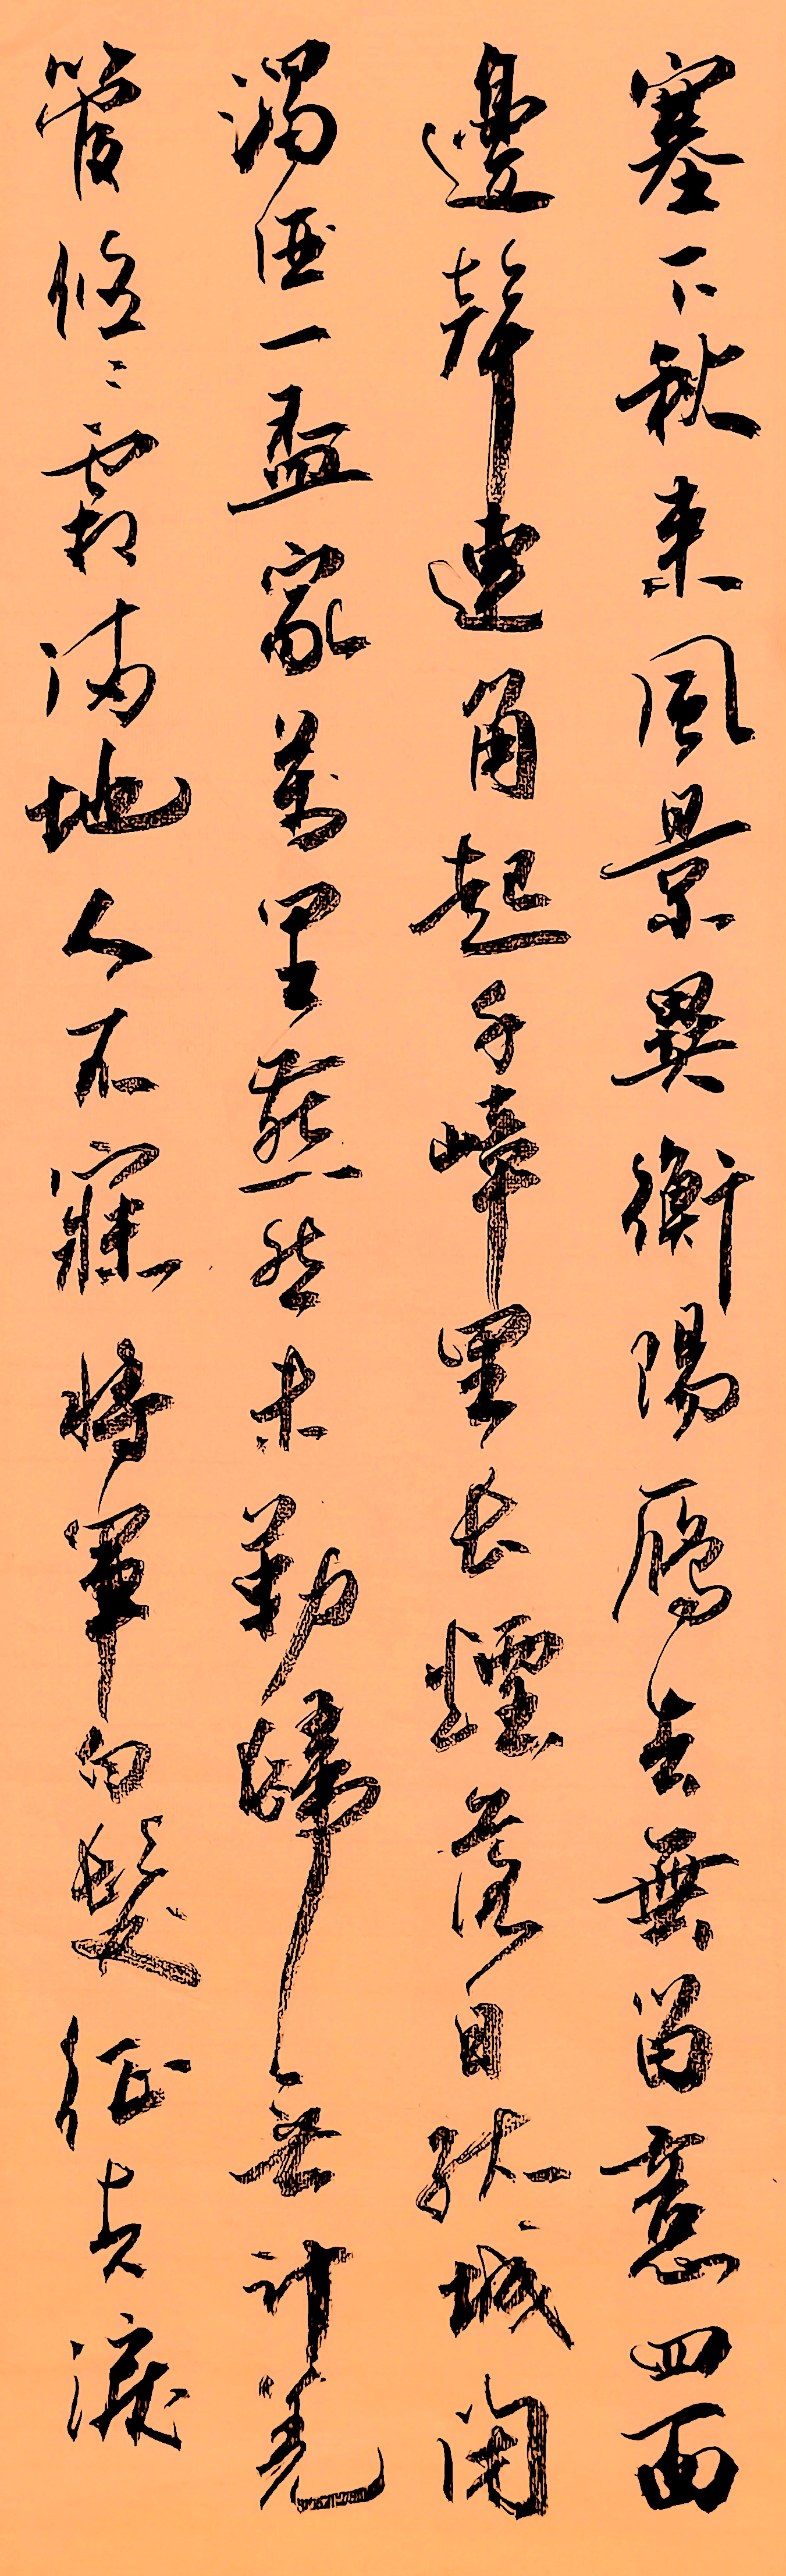 塞下秋来風景異衡陽雁去無留意四面
邊聲連角起千嶂里長煙落日孤城閉
濁酒一盃家萬里燕然未勒歸無計羌
管悠〻霜満地人不寐將軍白髮征夫淚